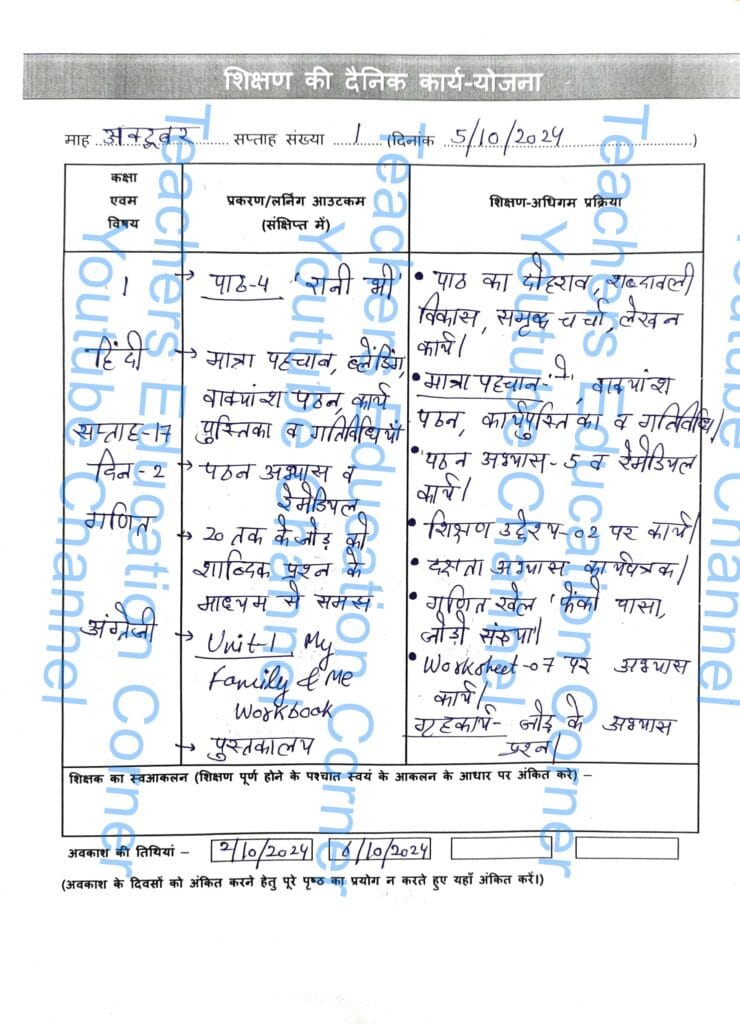 शिक्षण की दैनिक कार्य-योजना
माह अक्टूबर सप्ताह संख्या 1 (दिनांक 5/10/2024)
कक्षा
एवम
विषय
प्रकरण/लर्निंग आउटकम
(संक्षिप्त में)
शिक्षण-अधिगम प्रक्रिया
1
हिंदी
सप्ताह-17
दिन-2
गणित
अंग्रेजी
→ पाठ-4 'रानी भी'
→ मात्रा पहचान, ब्लेंडिंग,
वाक्यांश पठन, कार्य
पुस्तिका व गतिविधियाँ
→ पठन अभ्यास व
रेमेडियल
→ 20 तक के जोड़ को
शाब्दिक प्रश्न के
माध्यम से समझ
→ Unit-1 My
Family & Me
Workbook
→ पुस्तकालय
• पाठ का दोहराव, शब्दावली
विकास, समृद्ध चर्चा, लेखन
कार्य।
• मात्रा पहचान- वाक्यांश
पठन, कार्यपुस्तिका व गतिविधि।
• पठन अभ्यास-5 व रेमेडियल
कार्य।
• शिक्षण उद्देश्य-02 पर कार्य।
• दक्षता अभ्यास कार्यपत्रक।
• गणित खेल 'फेंको पासा,
जोड़ो संख्या।
• Worksheet-07 पर अभ्यास
कार्य।
गृहकार्य- जोड़ के अभ्यास
प्रश्न।
शिक्षक का स्वआकलन (शिक्षण पूर्ण होने के पश्चात स्वयं के आकलन के आधार पर अंकित करे) –
अवकाश की तिथियां – 2/10/2024 /10/2024
(अवकाश के दिवसों को अंकित करने हेतु पूरे पृष्ठ का प्रयोग न करते हुए यहाँ अंकित करें।)
Teachers Education Corner
Youtube Channel
Teachers Education Corner
Youtube Channel
Teachers Education Corner
Youtube Channel